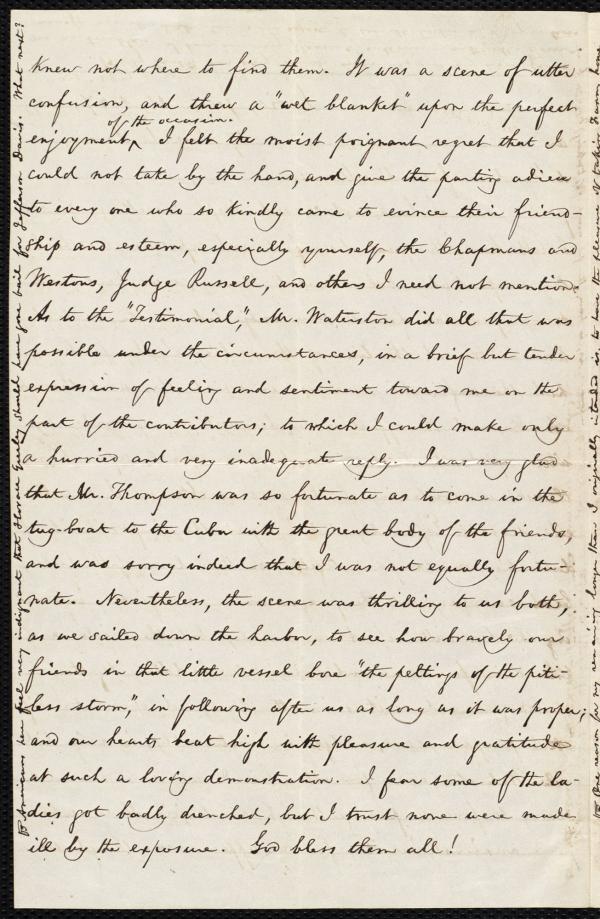 knew not where to find them. It was a scene of utter
confusion, and threw a "wet blanket" upon the perfect
of the occasion.
enjoyment ^ I felt the moist poignant regret that I
could not take by the hand, and give the parting adieu
to every one who so kindly came to evince their friend-
ship and esteem, especially yourself, the Chapmans and
Westons, Judge Russell, and others I need not mention.
As to the "Testimonial," Mr. Waterston did all that was
possible under the circumstances, in a brief but tender
expression of feeling and sentiment toward me on the
part of the contributors; to which I could make only
a hurried and very inadequate reply. I was very glad
that Mr. Thompson was so fortunate as to come in the
tug-boat to the Cuba with the great body of the friends,
and was sorry indeed that I was not equally fortu-
nate. Nevertheless, the scene was thrilling to us both,
as we sailed down the harbor, to see how bravely our
friends in that little vessel bore "the peltings of the piti-
less storm," in following after us as long as it was proper;
and our hearts beat high with pleasure and gratitude
at such a loving demonstration. I fear some of the la-
dies got badly drenched, but I trust none were made
ill by the exposure. God bless them all!
Americans here feel very indignant that Horace Greeley should have gone bail for Jefferson Davis. What next?
One reason for my remaining longer than I originally intended is, to have the pleasure of taking Fanny home